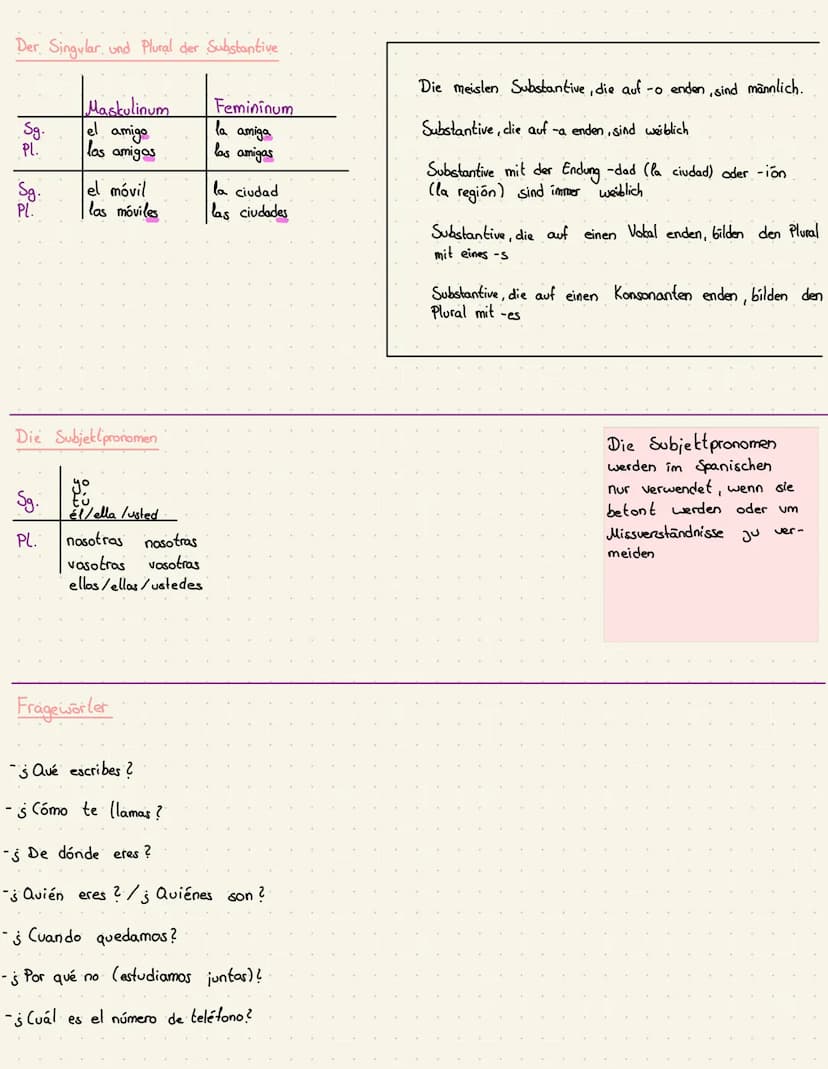 Der Singular und Plural der Substantive
Maskulinum Femininum
Sg. el amigo la amiga
Pl. los amigos las amigas
Sg. el móvil la ciudad
Pl. los móviles las ciudades
Die meisten Substantive, die auf -o enden, sind männlich.
Substantive, die auf -a enden, sind weiblich
Substantive mit der Endung -dad (la ciudad) oder -ión
(la región) sind immer weiblich
Substantive, die auf einen Vokal enden, bilden den Plural
mit eines -s
Substantive, die auf einen Konsonanten enden, bilden den
Plural mit -es
Die Subjektpronomen
yo
Sg. tú
él/ella/usted
Pl. nosotros nosotras
vosotros vosotras
ellos/ellas/ustedes
Die Subjektpronomen
werden im Spanischen
nur verwendet, wenn sie
betont werden oder um
Missverständnisse zu ver-
meiden
Fragewörter
- ¿Qué escribes?
- ¿Cómo te llamas?
- ¿De dónde eres?
- ¿Quién eres? / ¿Quiénes son?
- ¿Cuando quedamos?
- ¿Por qué no (estudiamos juntos)?
- ¿Cuál es el número de teléfono?